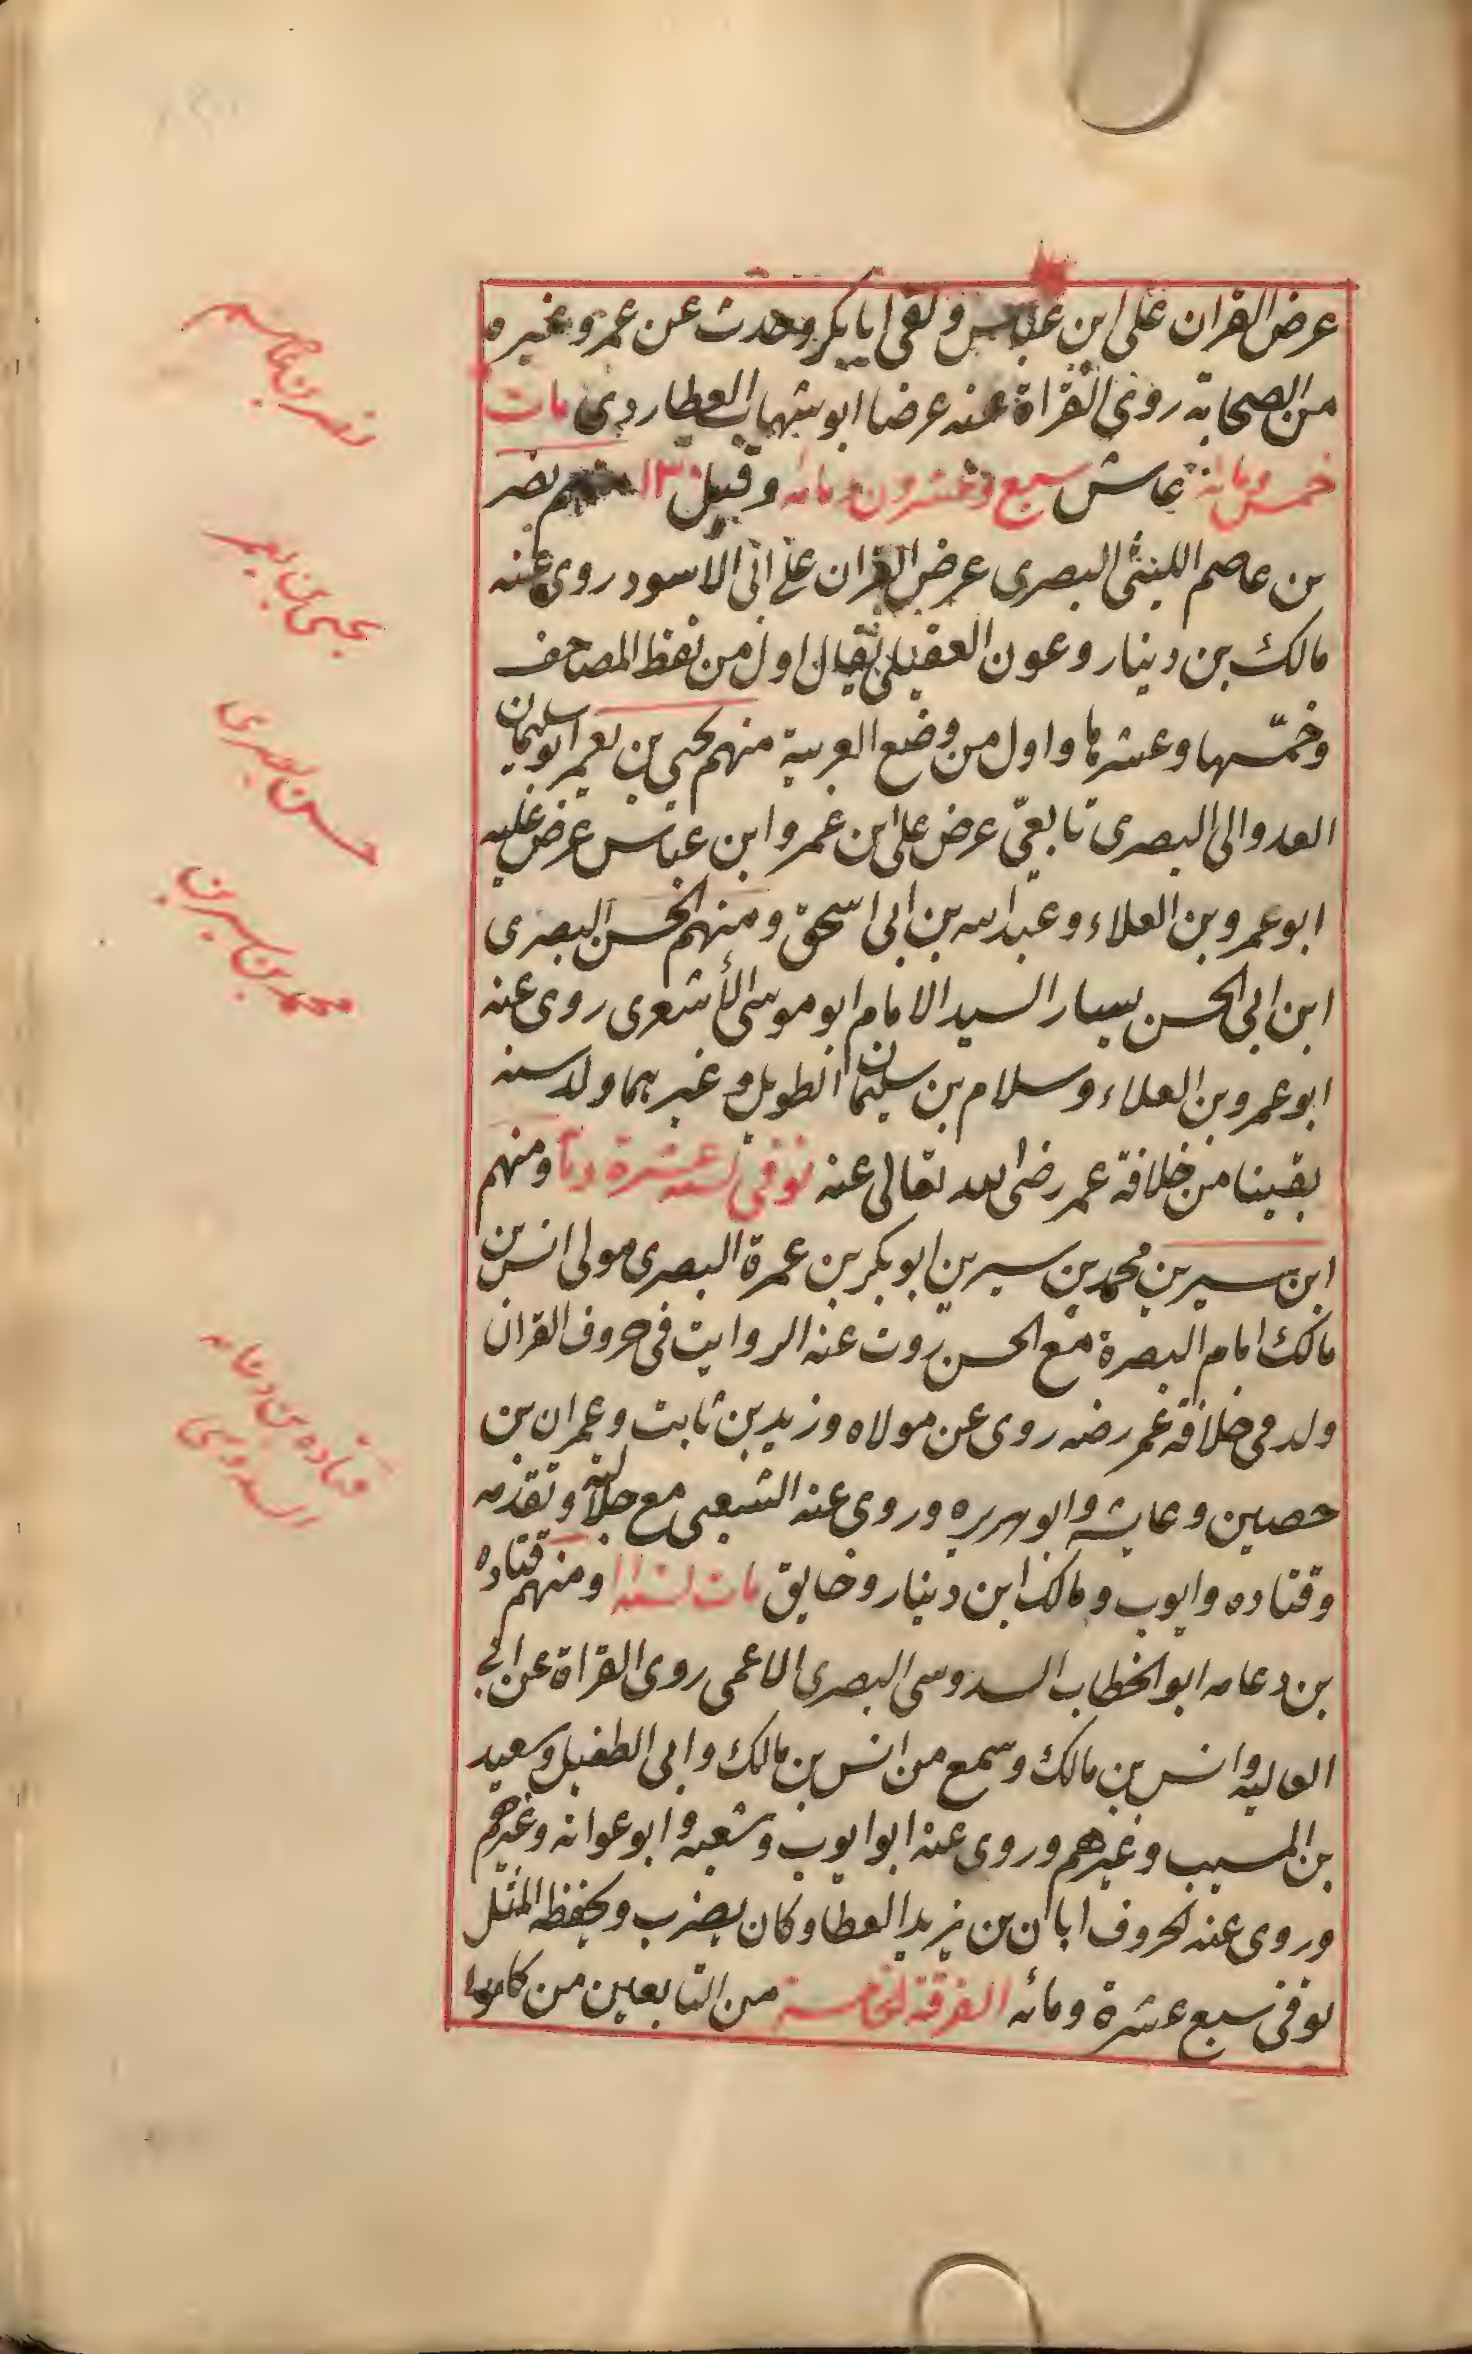 عرض القران على ابن عباس ولقى ابا بكر وحدث عن عمر وغيره
من الصحابة روى القراة عنه عرضا ابو شهاب العطاردى مات
خمس ومائة عاش سبع وعشرون ومائه وقيل ١٣٠ منهم نصر
بن عاصم الليثى البصرى عرض القران على ابى الاسود روى عنه
مالك بن دينار وعون العقيلى يقال اول من نقط المصاحف
وخمّسها وعشرها واول من وضع العربية منهم يحيى بن يعمر ابو سليمان
العدوالى البصرى تابعىّ عرض على ابن عمر وابن عباس عرض عليه
ابو عمرو بن العلاء وعبد الله بن ابى اسحق ومنهم الحسن البصرى
ابن ابى الحسن يسار السيد الامام ابو موسى الأشعرى روى عنه
ابو عمرو بن العلاء وسلام بن سليمان الطويل وغيرهما ولد سنه
بقينا من خلافة عمر رضى الله تعالى عنه توفى سنه عشرة ومأ ومنهم
ابن سيرين محمد بن سيرين ابو بكر بن عمرة البصرى مولى انس بن
مالك امام البصرة مع الحسن روت عنه الروايت فى حروف القران
ولد فى خلافه عمر رضه روى عن مولاه وزيد بن ثابت وعمران بن
حصين وعايشه وابو هريره وروى عنه الشعبى مع جلالته وتقدمه
وقتاده وايوب ومالك ابن دينار وخايق مات سنه ومنهم قتاده
بن دعامه ابو الخطاب السدوسى البصرى الاعمى روى القراة عن ابى
العاليه وانس بن مالك وسمع من انس بن مالك وابى الطفيل وسعيد
بن المسيب وغيرهم وروى عنه ابو ايوب وشعبه وابو عوانه وغيرهم
وروى عنه لحروف ابان بن يزيد العطا وكان يضرب ويحفظه المثل
توفى سبع عشرة ومائه الفرقة الخامسة من التابعين من كانوا
نصر بن عاصم
يحيى بن يعمر
حسن بصرى
محمد بن سيرين
قتاده بن دعامه
السدوسى